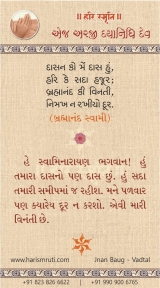 ॥ હરિ સ્મૃતિ ॥
એજ અરજી દયાનિધિ દેવ
દાસન કો મેં દાસ હું,
હરિ કે સદા હજુર;
બ્રહ્માનંદ કી વિનતી,
નિમખ ન રખીયો દૂર.
(બ્રહ્માનંદ સ્વામી)
હે સ્વામિનારાયણ ભગવાન! હું
તમારા દાસનો પણ દાસ છું. હું સદા
તમારી સમીપમાં જ રહીશ. મને પળવાર
પણ ક્યારેય દૂર ન કરશો. એવી મારી
વિનંતી છે.
www.harismruti.com
Jnan Baug - Vadtal
+91 823 826 6622
+91 909 900 6765